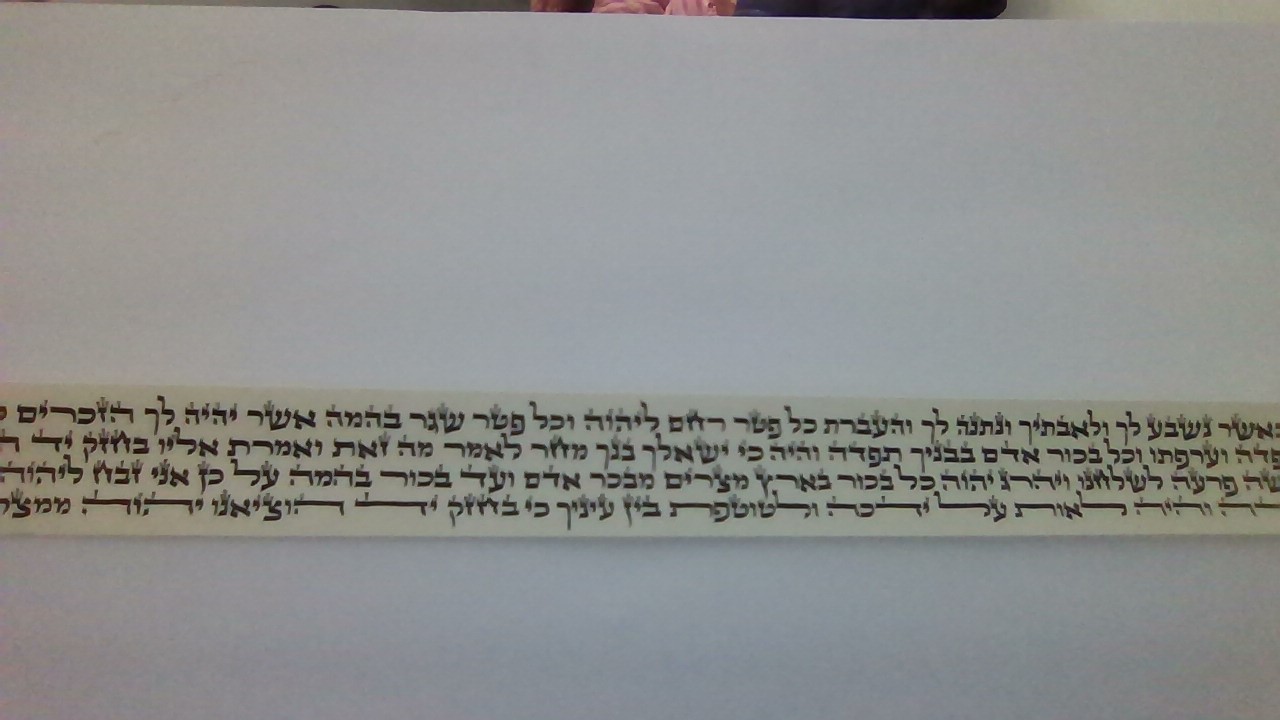 כאשר נשבע לך ולאבתיך ונתנה לך והעברת כל פטר רחם ליהוה וכל פטר שגר בהמה אשר יהיה לך הזכרים
פדה וערפתו וכל בכור אדם בבניך תפדה והיה כי ישאלך בנך מחר לאמר מה זאת ואמרת אליו בחזק יד
שה פרעה לשלחנו ויהרג יהוה כל בכור בארץ מצרים מבכר אדם ועד בכור בהמה על כן אני זבח ליהוה
והיה לאות על ידכה ולטוטפת בין עיניך כי בחזק יד הוציאנו יהוה ממצר